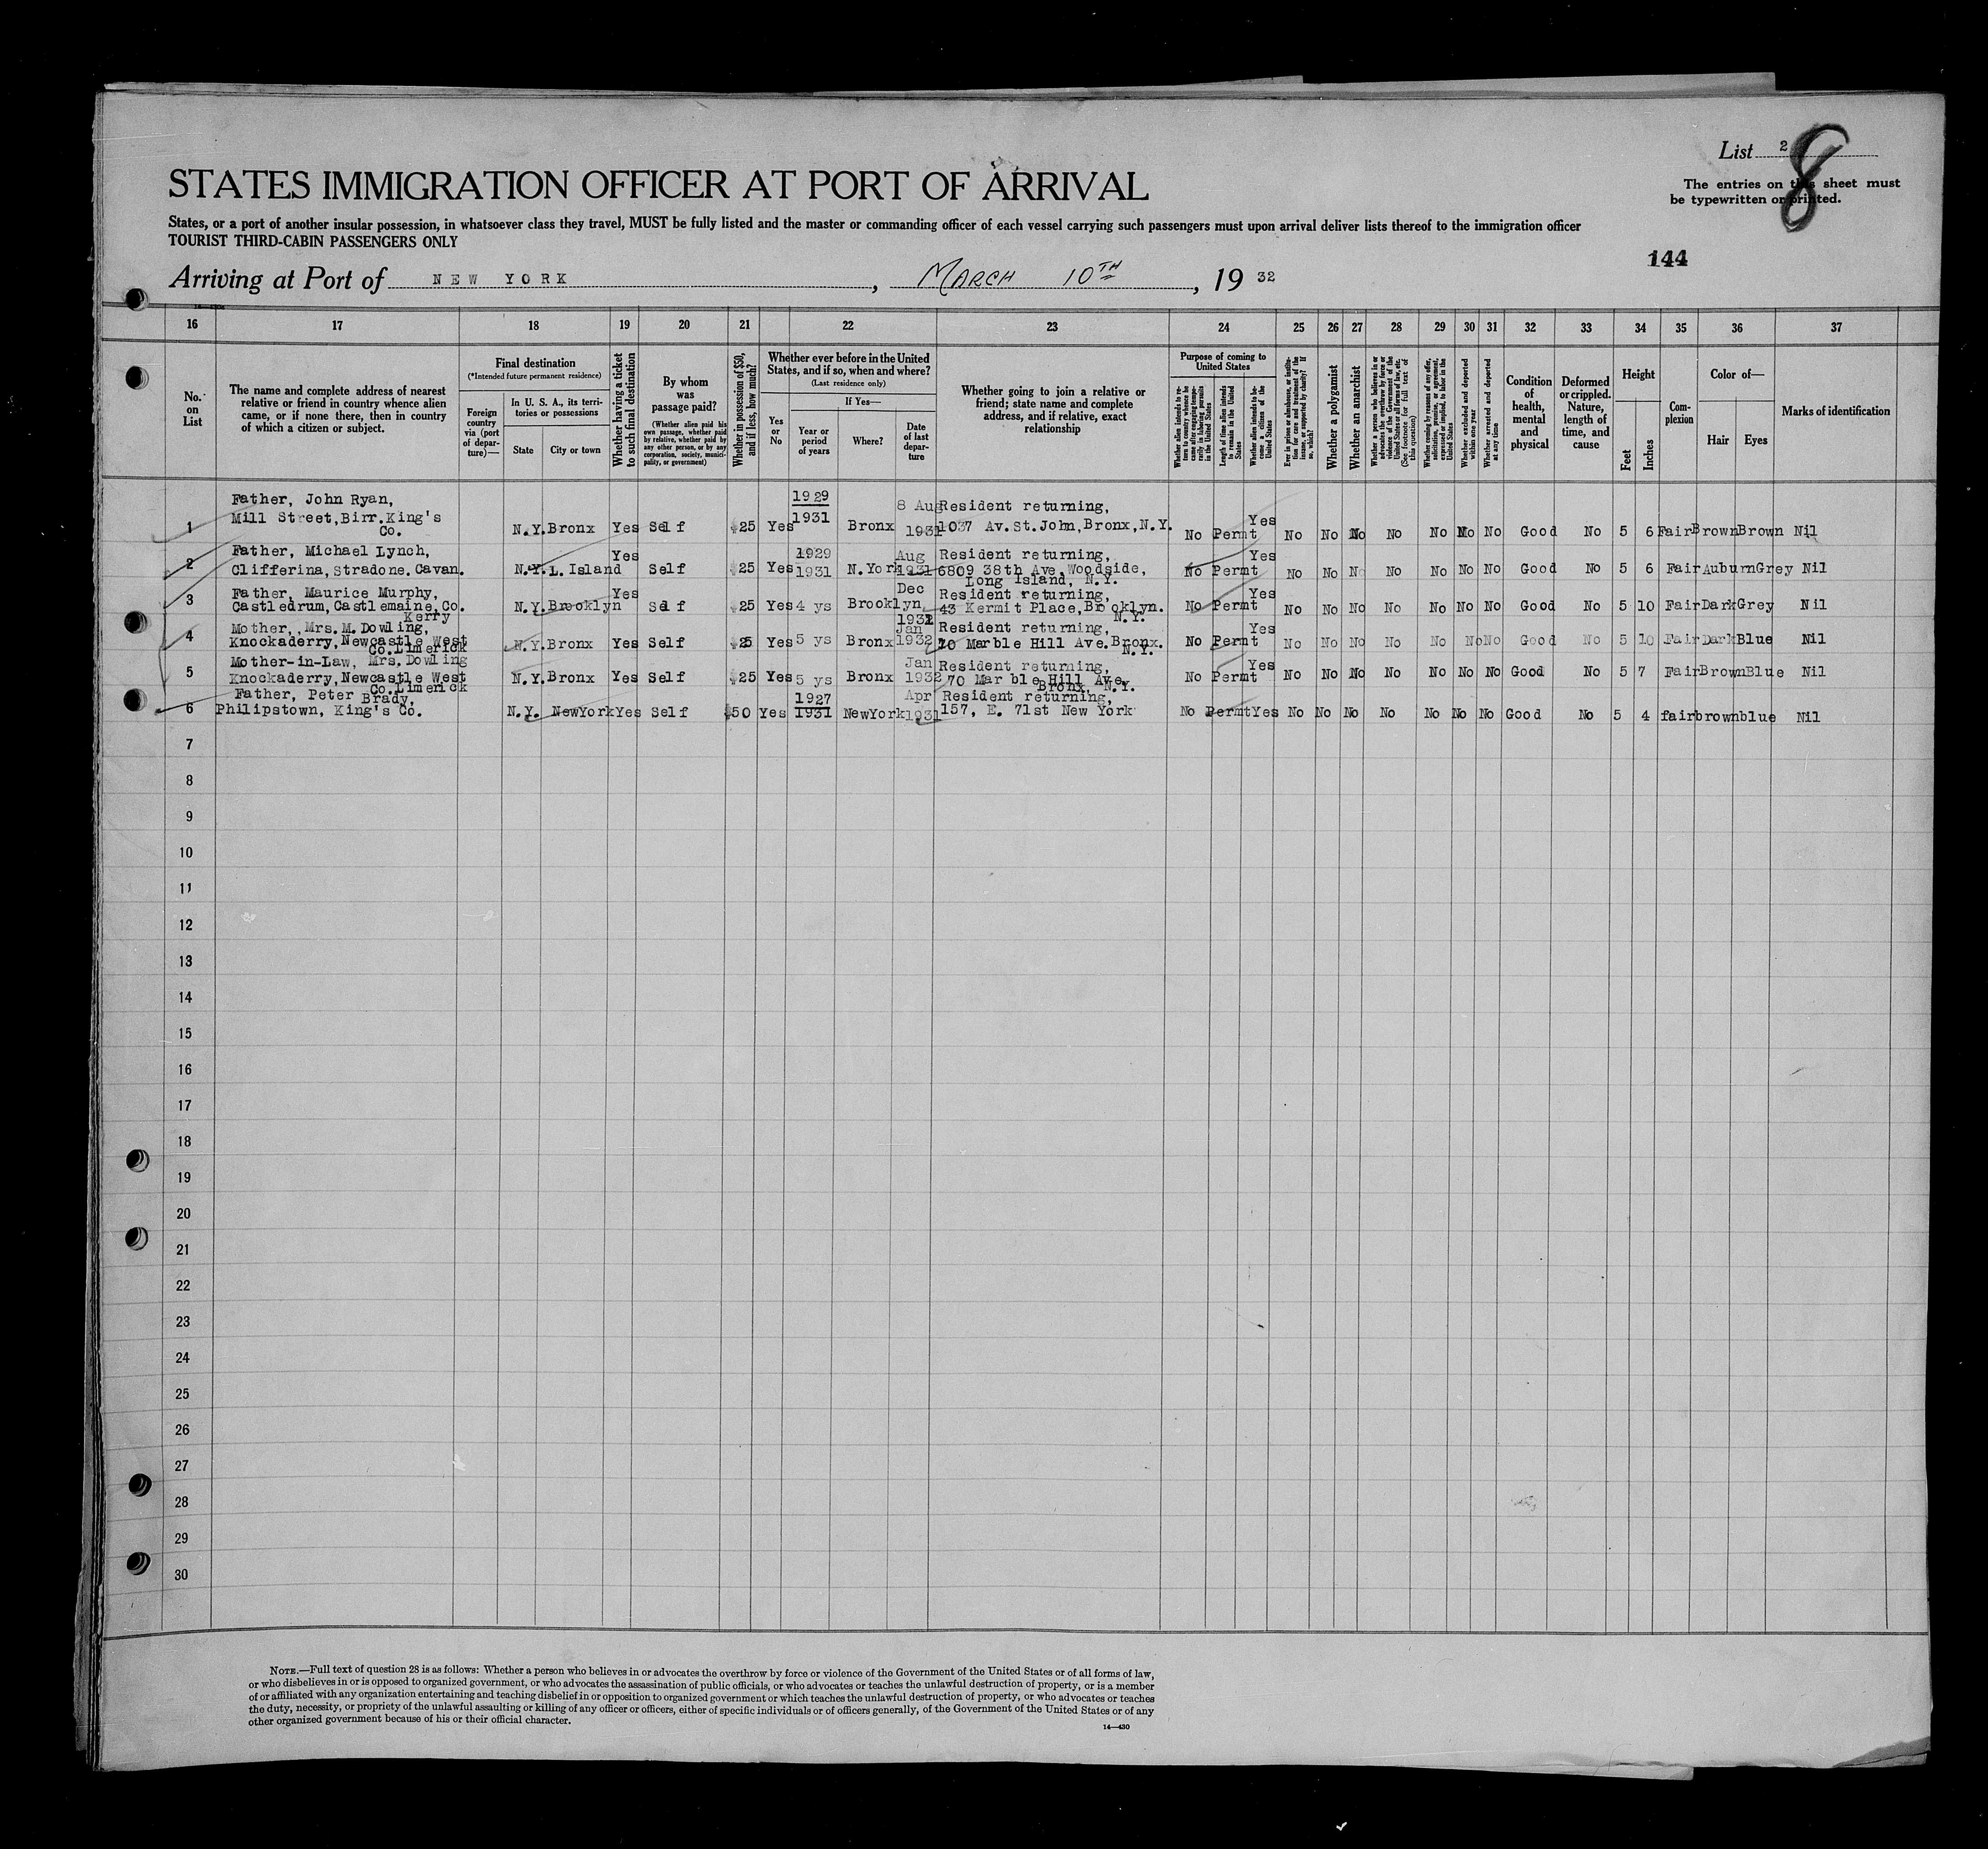 List 2
8
The entries on this sheet must
be typewritten or printed.
STATES IMMIGRATION OFFICER AT PORT OF ARRIVAL
States, or a port of another insular possession, in whatsoever class they travel, MUST be fully listed and the master or commanding officer of each vessel carrying such passengers must upon arrival deliver lists thereof to the immigration officer
TOURIST THIRD-CABIN PASSENGERS ONLY
144
Arriving at Port of NEW YORK, MARCH 10TH, 19 32
16 17 18 19 20 21 22 23 24 25 26 27 28 29 30 31 32 33 34 35 36 37
No. on List
The name and complete address of nearest
relative or friend in country whence alien
came, or if none there, then in country
of which a citizen or subject.
Final destination
(*Intended future permanent residence)
Foreign country via (port of departure)—
In U. S. A., its territories or possessions
State City or town
Whether having a ticket to such final destination
By whom was passage paid?
(Whether alien paid his own passage, whether paid by relative, whether paid by any other person, or by any corporation, society, municipality, or government)
Whether in possession of $50, and if less, how much?
Whether ever before in the United
States, and if so, when and where?
(Last residence only)
Yes or No
If Yes—
Year or period of years
Where?
Date of last departure
Whether going to join a relative or
friend; state name and complete
address, and if relative, exact
relationship
Purpose of coming to
United States
Length of time alien intends to remain in the United States
Whether alien intends to become a citizen of the United States
Whether a polygamist
Whether an anarchist
Whether excluded and deported within one year
Whether arrested and deported at any time
Condition of health, mental and physical
Deformed or crippled. Nature, length of time, and cause
Height
Feet Inches
Complexion
Color of—
Hair Eyes
Marks of identification
1 Father, John Ryan,
Mill Street, Birr. King's
Co. N.Y. Bronx Yes Self $25 Yes 1929 1931 Bronx 8 Aug 1931 Resident returning,
1037 Av. St. John, Bronx, N.Y. No Permt Yes No No No No No No No Good No 5 6 Fair Brown Brown Nil
2 Father, Michael Lynch,
Clifferina, Stradone. Cavan. N.Y. L. Island Yes Self $25 Yes 1929 1931 N. York Aug 1931 Resident returning,
6809 38th Ave, Woodside,
Long Island, N.Y. No Permt Yes No No No No No No No Good No 5 6 Fair Auburn Grey Nil
3 Father, Maurice Murphy,
Castledrum, Castlemaine, Co.
Kerry N.Y. Brooklyn Yes Self $25 Yes 4 ys Brooklyn Dec 1931 Resident returning,
43 Kermit Place, Brooklyn.
N.Y. No Permt Yes No No No No No No No Good No 5 10 Fair Dark Grey Nil
4 Mother, Mrs. M. Dowling,
Knockaderry, Newcastle West
Co. Limerick N.Y. Bronx Yes Self $25 Yes 5 ys Bronx Jan 1932 Resident returning,
70 Marble Hill Ave. Bronx.
N.Y. No Permt Yes No No No No No No No Good No 5 10 Fair Dark Blue Nil
5 Mother-in-Law, Mrs. Dowling
Knockaderry, Newcastle West
Co. Limerick N.Y. Bronx Yes Self $25 Yes 5 ys Bronx Jan 1932 Resident returning,
70 Marble Hill Ave,
Bronx, N.Y. No Permt Yes No No No No No No No Good No 5 7 Fair Brown Blue Nil
6 Father, Peter Brady,
Philipstown, King's Co. N.Y. New York Yes Self $50 Yes 1927 1931 New York Apr 1931 Resident returning,
157, E. 71st New York No Permt Yes No No No No No No No Good No 5 4 fair brown blue Nil
7
8
9
10
11
12
13
14
15
16
17
18
19
20
21
22
23
24
25
26
27
28
29
30
NOTE.—Full text of question 28 is as follows: Whether a person who believes in or advocates the overthrow by force or violence of the Government of the United States or of all forms of law,
or who disbelieves in or is opposed to organized government, or who advocates the assassination of public officials, or who advocates or teaches the unlawful destruction of property, or is a member
of or affiliated with any organization entertaining and teaching disbelief in or opposition to organized government or which teaches the unlawful destruction of property, or who advocates or teaches
the duty, necessity, or propriety of the unlawful assaulting or killing of any officer or officers, either of specific individuals or of officers generally, of the Government of the United States or of any
other organized government because of his or their official character.
14—430